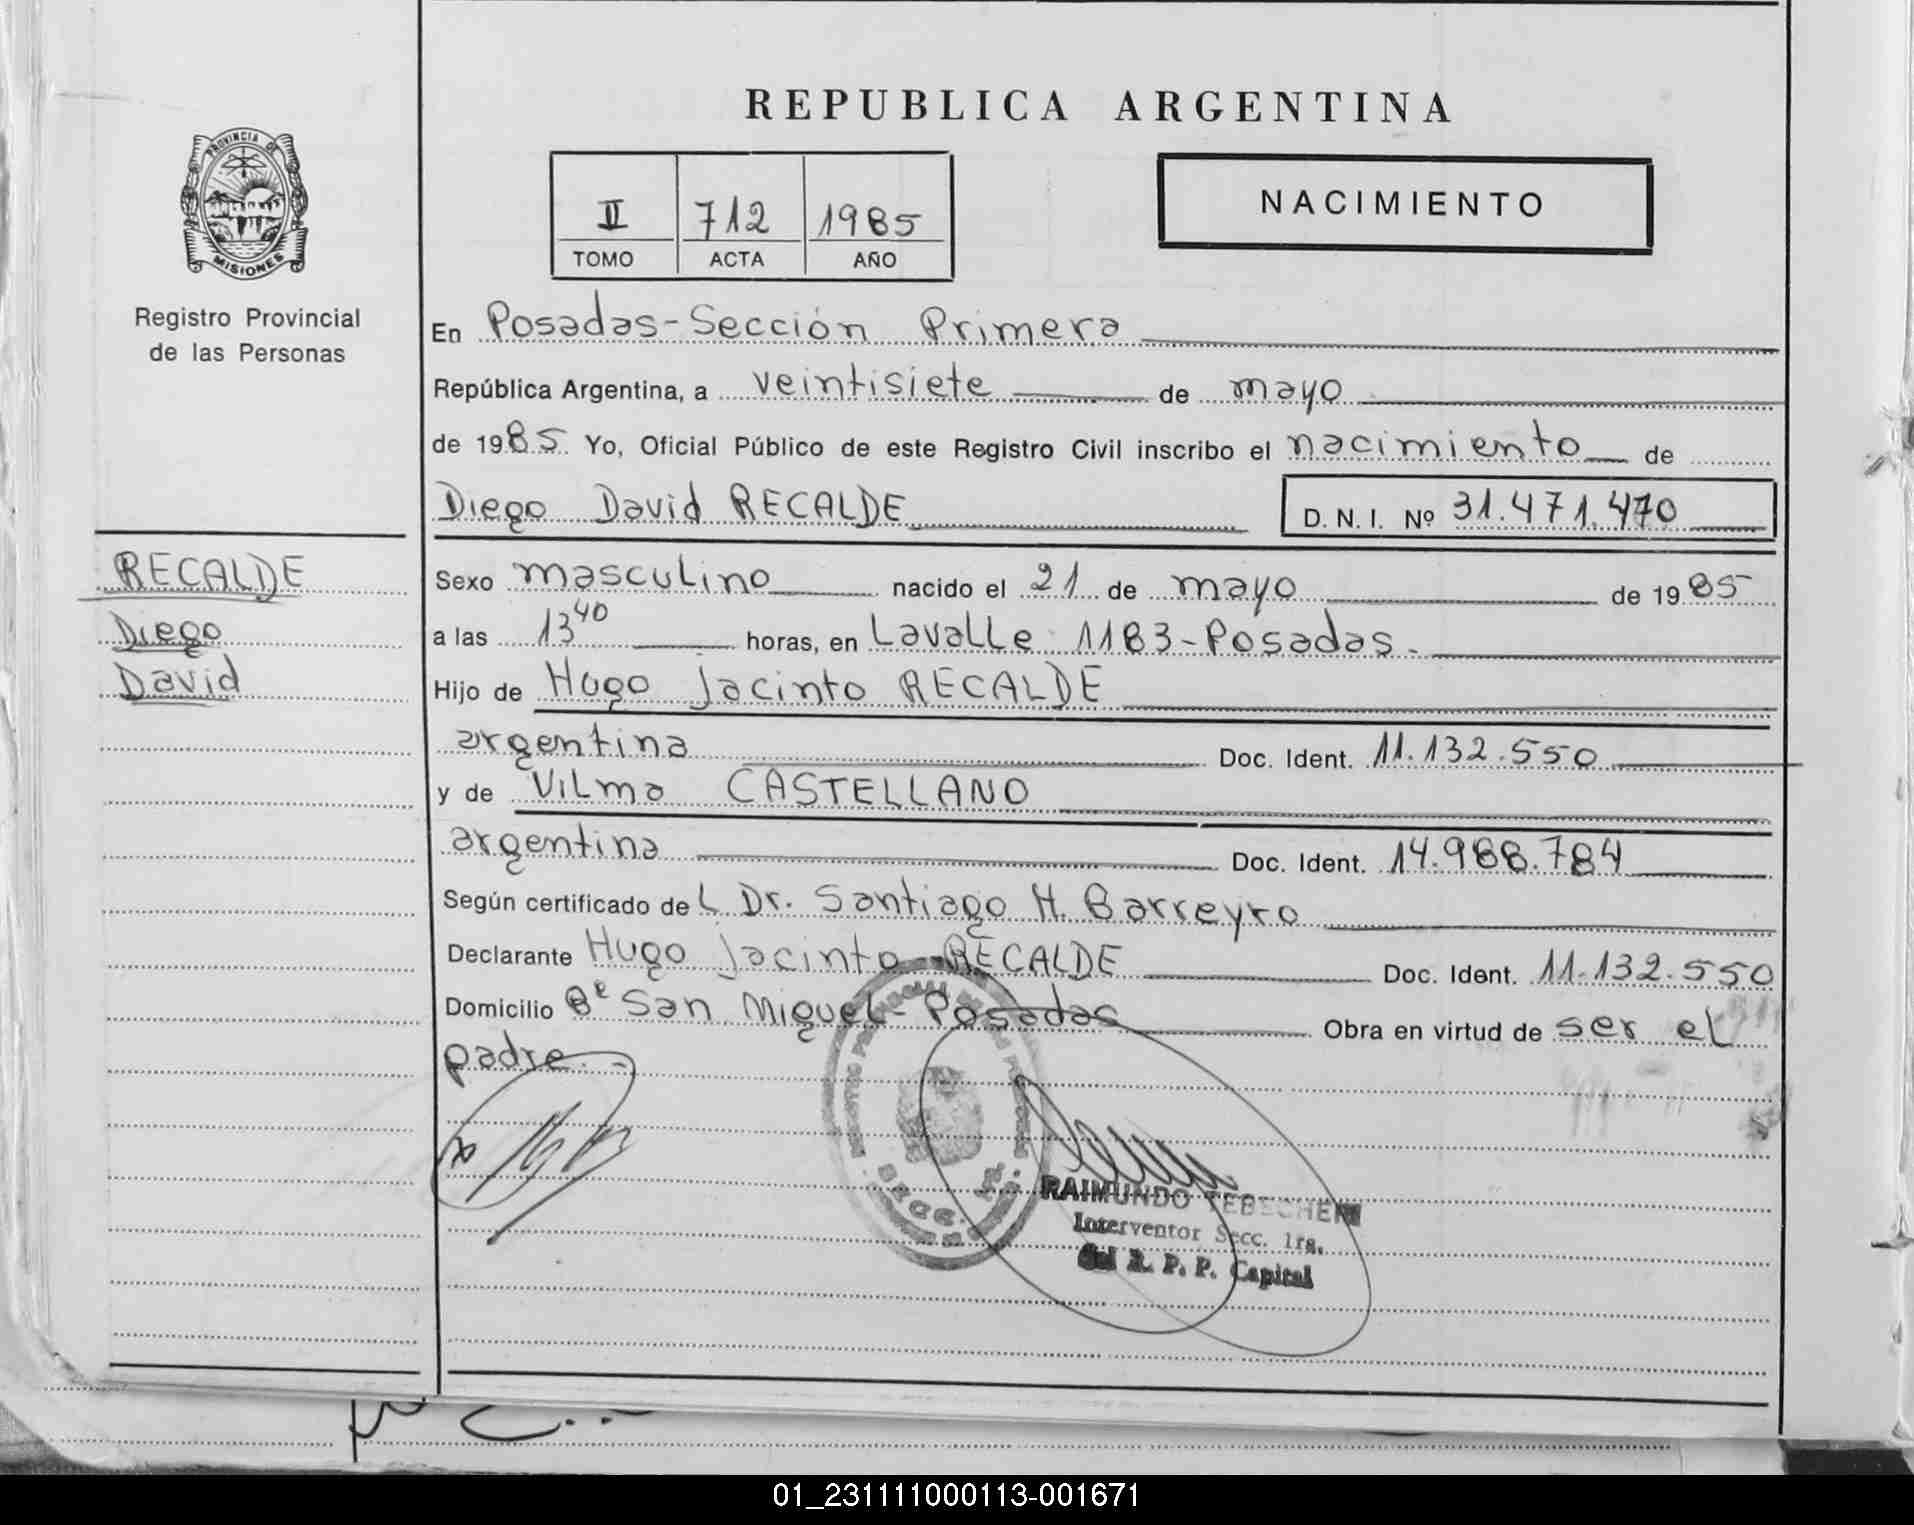 REPUBLICA ARGENTINA
PROVINCIA DE
MISIONES
Registro Provincial
de las Personas
II 712 1985
TOMO ACTA AÑO
NACIMIENTO
En Posadas-Sección Primera
República Argentina, a veintisiete de mayo
de 1985 Yo, Oficial Público de este Registro Civil inscribo el nacimiento de
Diego David RECALDE D. N. I. Nº 31.471.470
RECALDE
Diego
David
Sexo masculino nacido el 21 de mayo de 1985
a las 13 40 horas, en Lavalle 1183-Posadas.
Hijo de Hugo Jacinto RECALDE
argentina Doc. Ident. 11.132.550
y de Vilma CASTELLANO
argentina Doc. Ident. 14.988.784
Según certificado del Dr. Santiago H. Barreyro
Declarante Hugo Jacinto RECALDE Doc. Ident. 11.132.550
Domicilio Bº San Miguel-Posadas Obra en virtud de ser el
padre.-
RAIMUNDO
Interventor Secc. 1ra.
del R. P. P. Capital
01_231111000113-001671